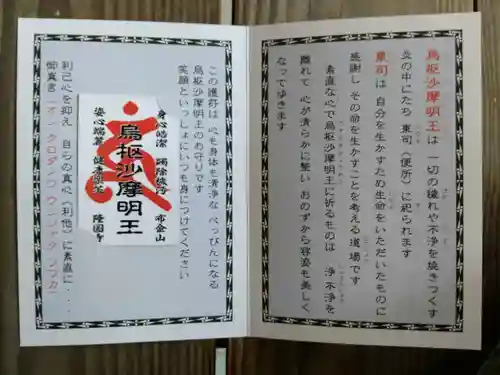 烏枢沙摩明王は 一切の穢れや不浄を焼きつくす
炎の中にたち 東司（便所）に祀られます
東司は 自分を生かすため生命をいただいたものに
感謝し その命を生かすことを考える道場です
素直な心で烏枢沙摩明王に祈るものは 浄 不浄を
離れて 心が清らかに整い おのずから容姿も美しく
なってゆきます
この護符は 心も身体も清浄な べっぴんになる
烏枢沙摩明王のお守りです
笑顔といっしょにいつも身につけてください
身心皓潔
布金山
烏枢沙摩明王
姿心端麗 健康
隆國寺
利己心を抑え 自らの真心（利他）に素直に‥‥
御真言「オン クロダノウ ウンジャク ソワカ」